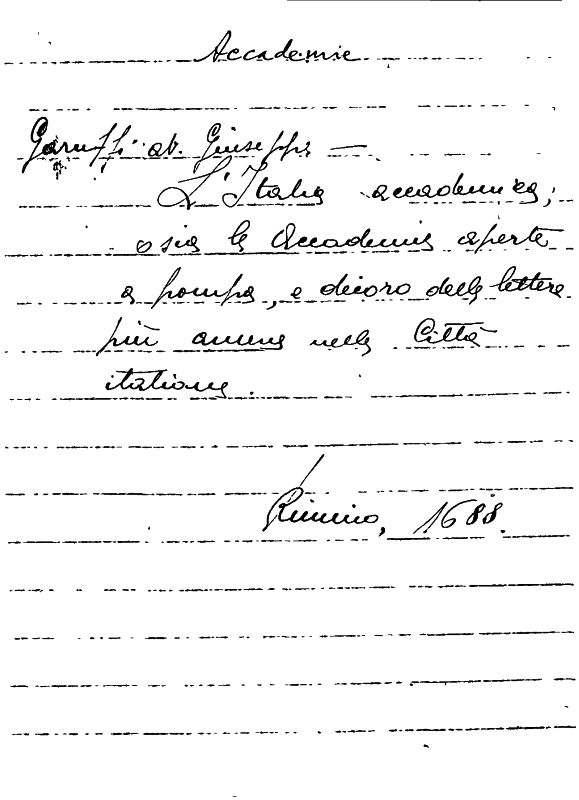 Accademie
Garuffi ab. Giuseppe —
L'Italia accademica;
o sia le Accademie aperte
a pompa, e decoro delle lettere
più amene nelle Città
italiane.
Rimino, 1688.